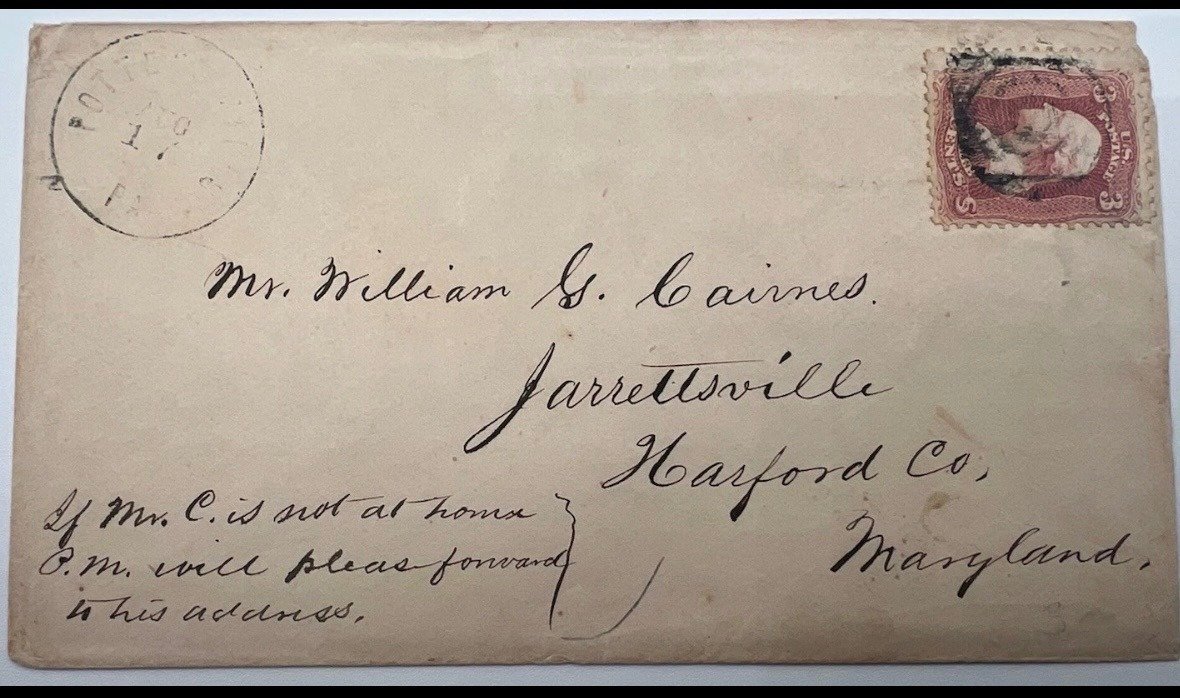 PA
U.S. POSTAGE
3 3
Mr. William G. Cairnes.
Jarrettsville
Harford Co,
Maryland.
If Mr. C. is not at home
P.M. will pleas forward
to his address.